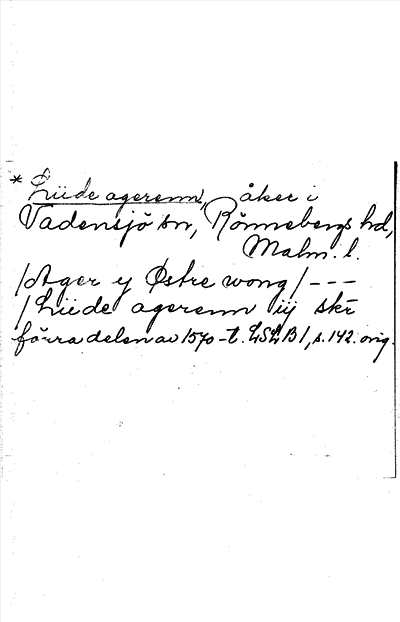 * Hüde agerenn, åker i
Vadensjö sn, Rönnebergs hd,
Malm. l.
/Ager y Østre wong/ ---
/Hüde agerenn iij skr
förra delen av 1570-t. LSLB1, s. 142. orig.